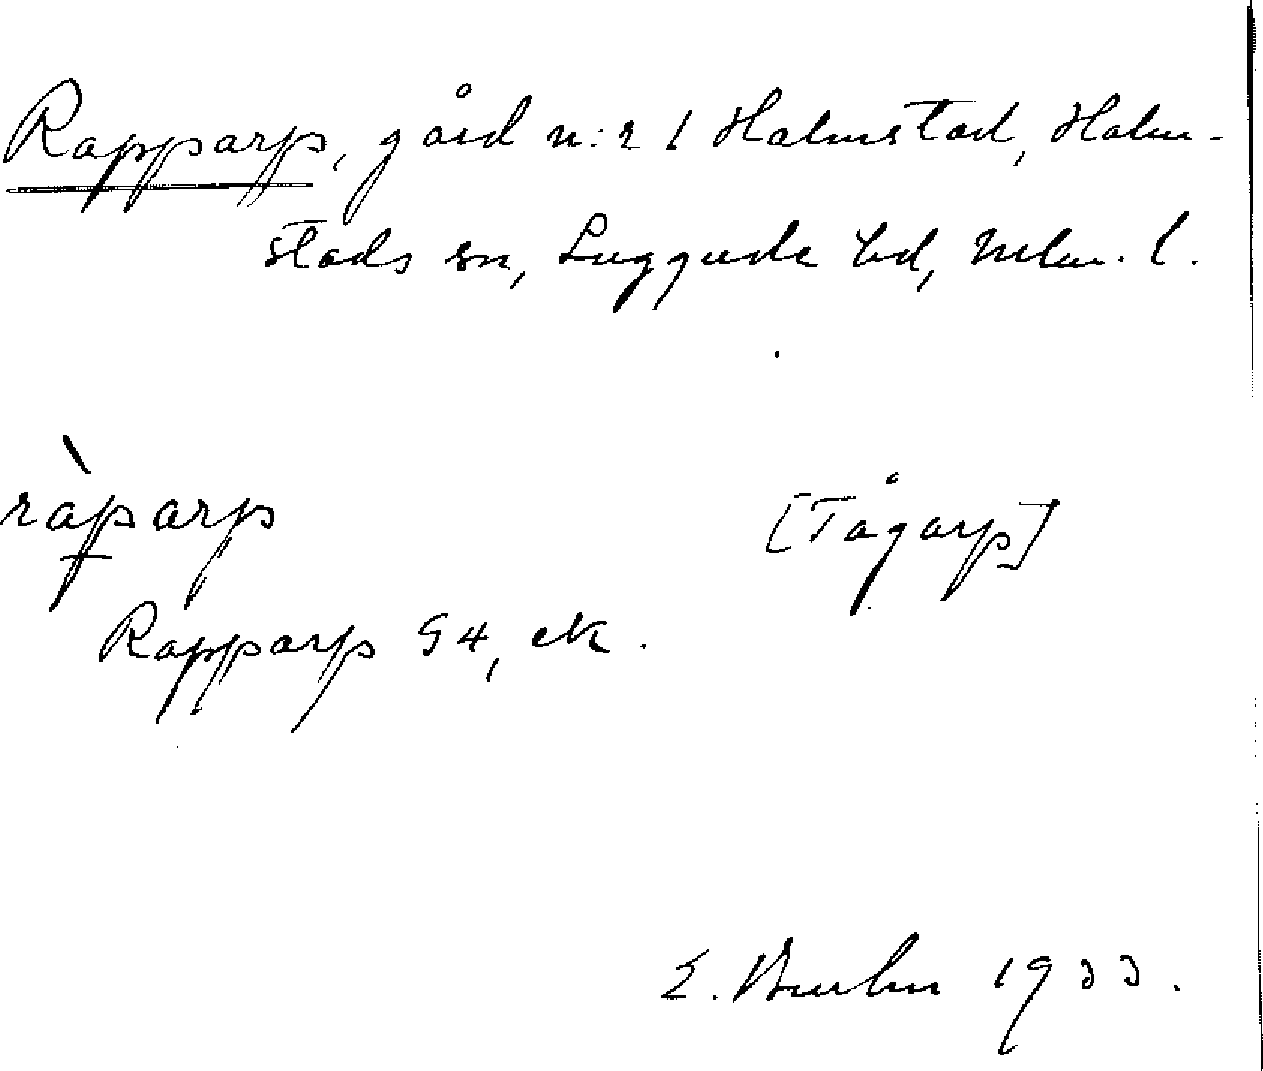 Rapparp, gård n:r 1 Halmstad, Halm-
stads sn, Luggude hd, Mlm. l.
ràparp [Tågarp]
Rapparp G4, ek.
E. 1933.